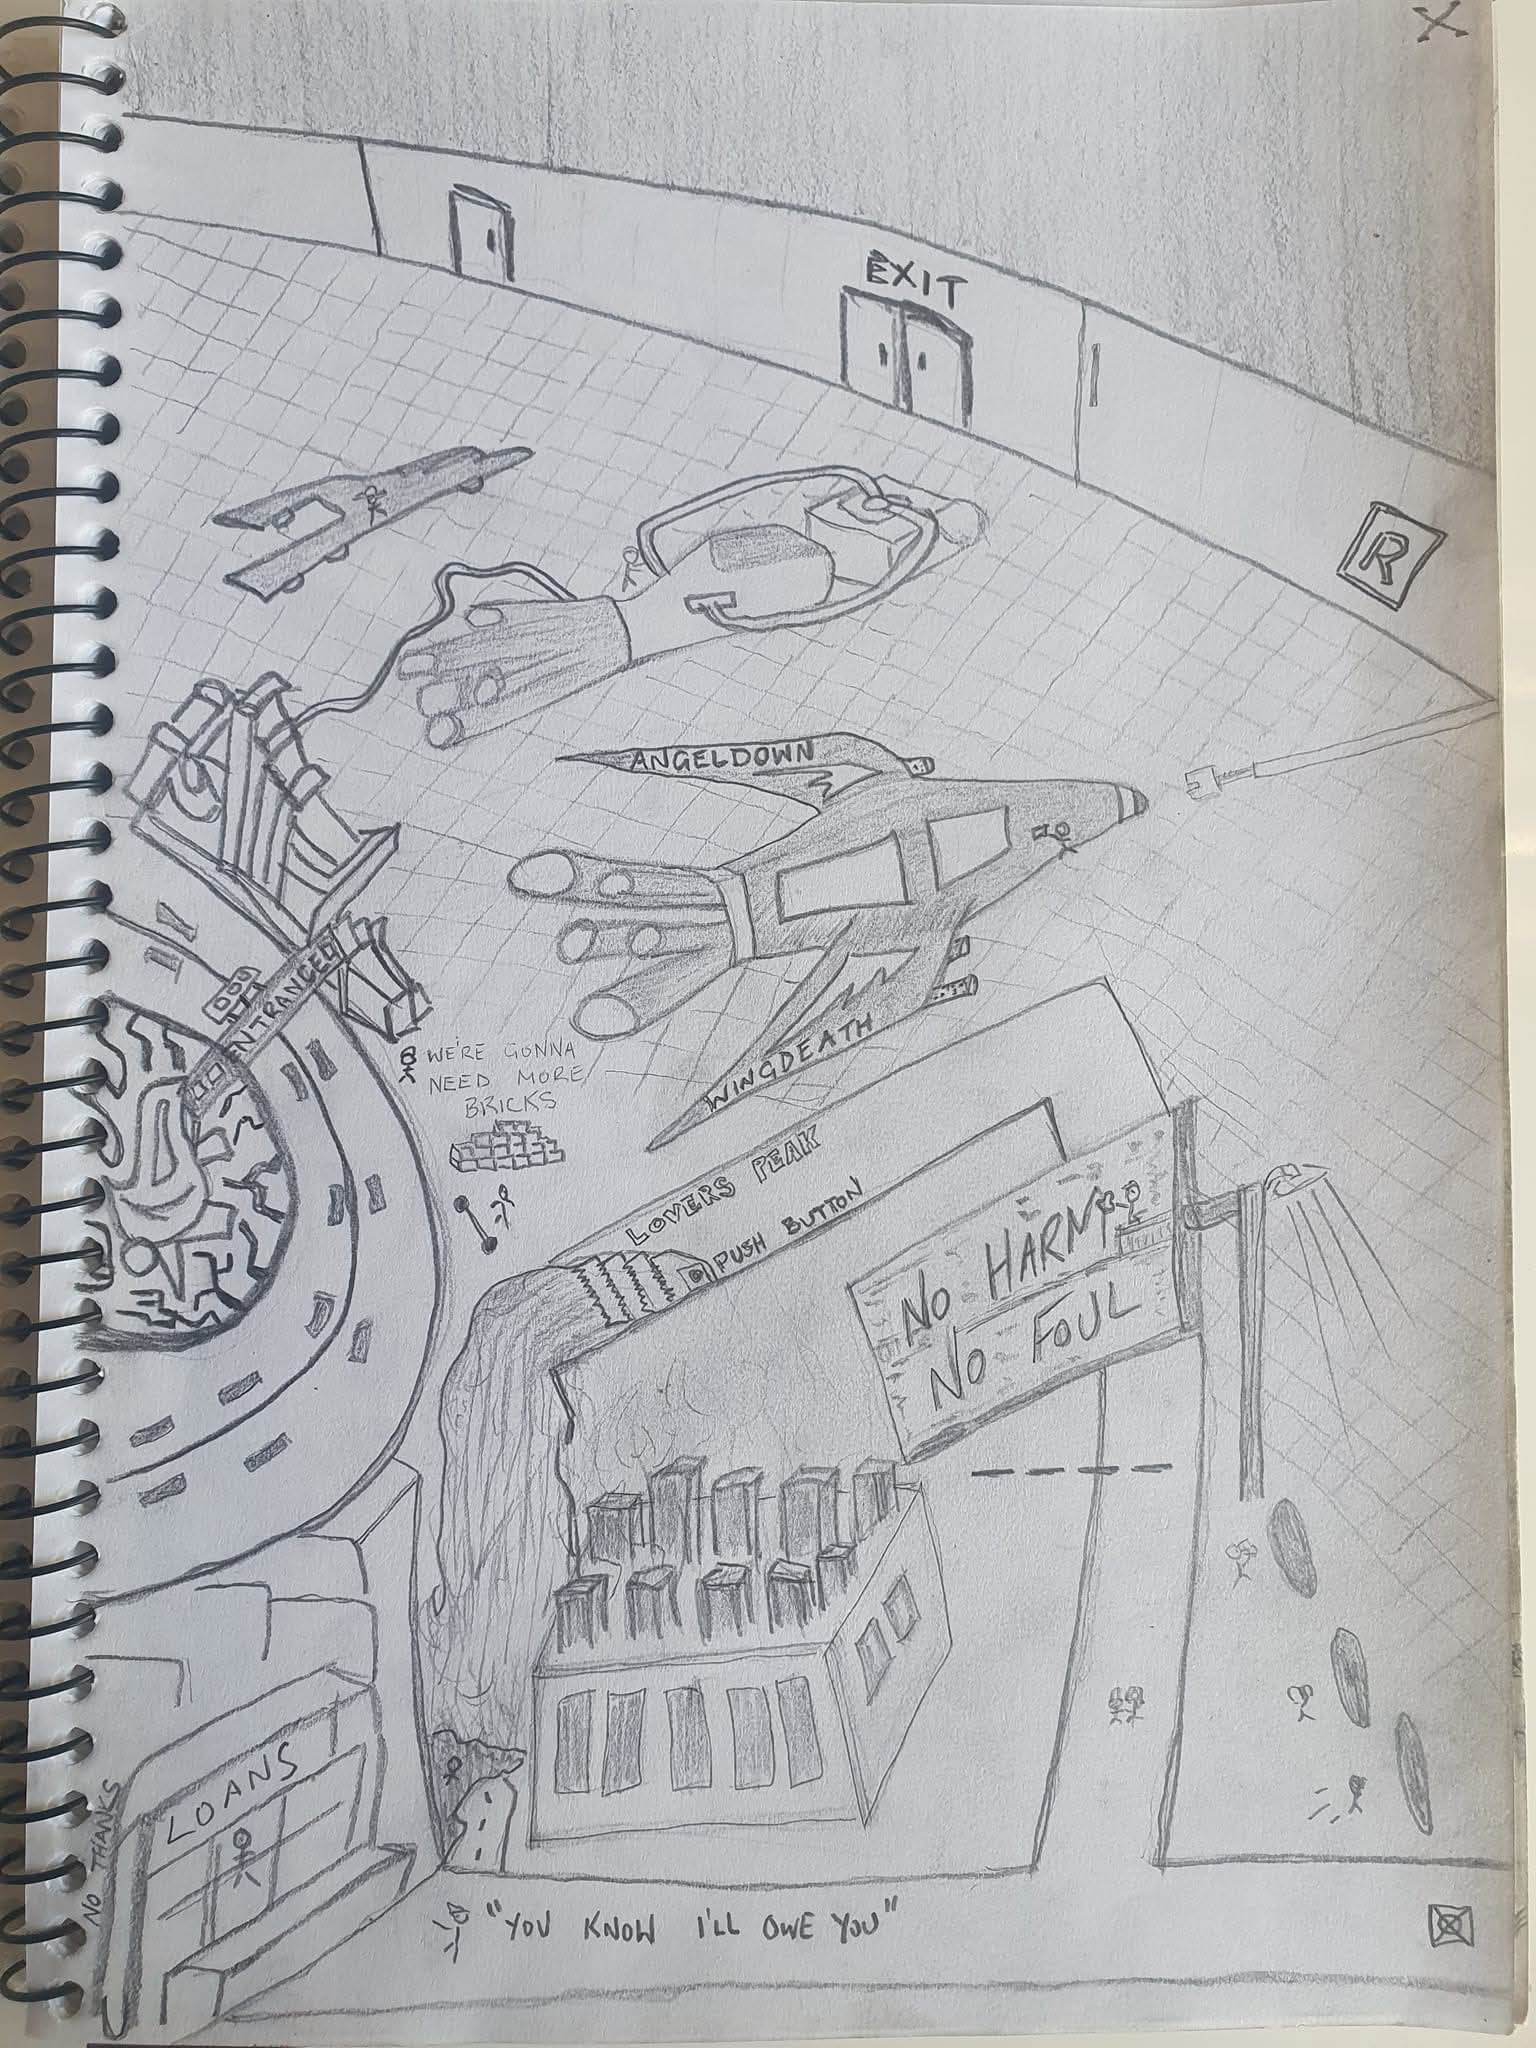 X
EXIT
R
ANGELDOWN
ENTRANCED
WE'RE GONNA
NEED MORE
BRICKS
WINGDEATH
LOVERS PEAK
PUSH BUTTON
NO HARM
NO FOUL
LOANS
NO THANKS
"YOU KNOW I'LL OWE YOU"